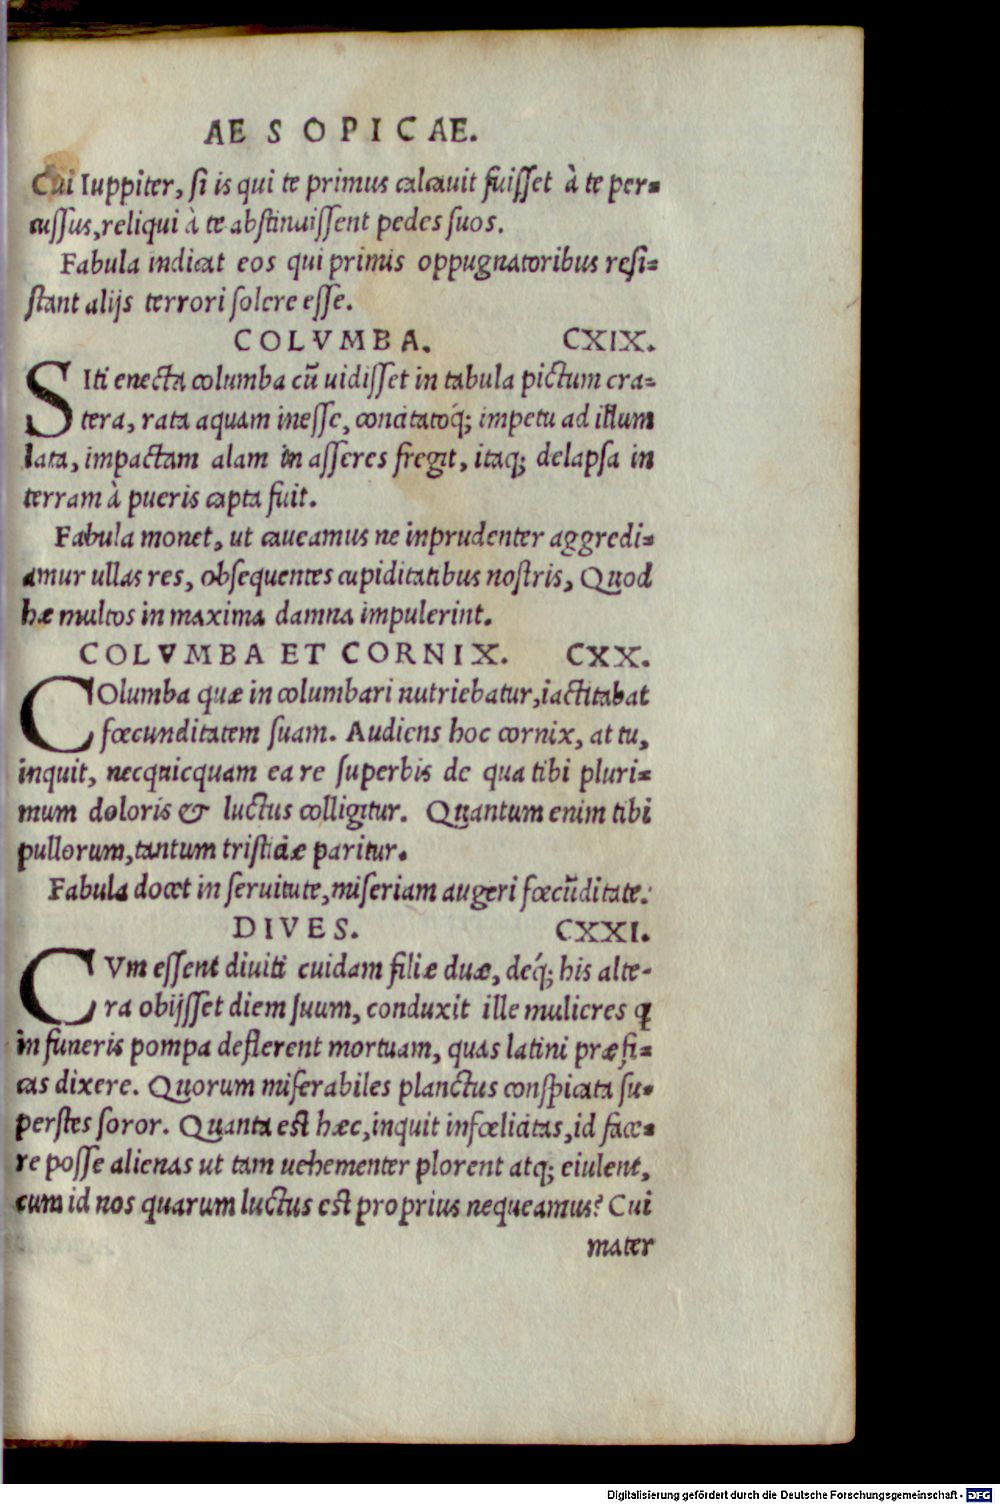 AE S O P I C AE.
Cui Iuppiter, ſi is qui te primus calcauit fuiſſet à te per=
cuſſus, reliqui à te abſtinuiſſent pedes ſuos.
Fabula indicat eos qui primis oppugnatoribus reſi=
ſtant alijs terrori ſolere eſſe.
COLVMBA. CXIX.
SIti enecta columba cū uidiſſet in tabula pictum cra=
tera, rata aquam ineſſe, concitatoq́; impetu ad illum
lata, impactam alam in aſſeres fregit, itaq; delapſa in
terram à pueris capta fuit.
Fabula monet, ut caueamus ne inprudenter aggredi=
amur ullas res, obſequentes cupiditatibus noſtris, Quod
hæ multos in maxima damna impulerint.
COLVMBA ET CORNIX. CXX.
COlumba quæ in columbari nutriebatur, iactitabat
fœcunditatem ſuam. Audiens hoc cornix, at tu,
inquit, necquicquam ea re ſuperbis de qua tibi pluri=
mum doloris & luctus colligitur. Quantum enim tibi
pullorum, tantum triſtiæ paritur.
Fabula docet in ſeruitute, miſeriam augeri fœcūditate.
DIVES. CXXI.
CVm eſſent diuiti cuidam filiæ duæ, deq́; his alte-
ra obijſſet diem ſuum, conduxit ille mulieres ꝗ
in funeris pompa deflerent mortuam, quas latini præfi=
cas dixere. Quorum miſerabiles planctus conſpicata ſu=
perſtes ſoror. Quanta eſt hæc, inquit infœlicitas, id face=
re poſſe alienas ut tam uehementer plorent atq; eiulent,
cum id nos quarum luctus eſt proprius nequeamus? Cui
mater
Digitalisierung gefördert durch die Deutsche Forschungsgemeinschaft - DFG